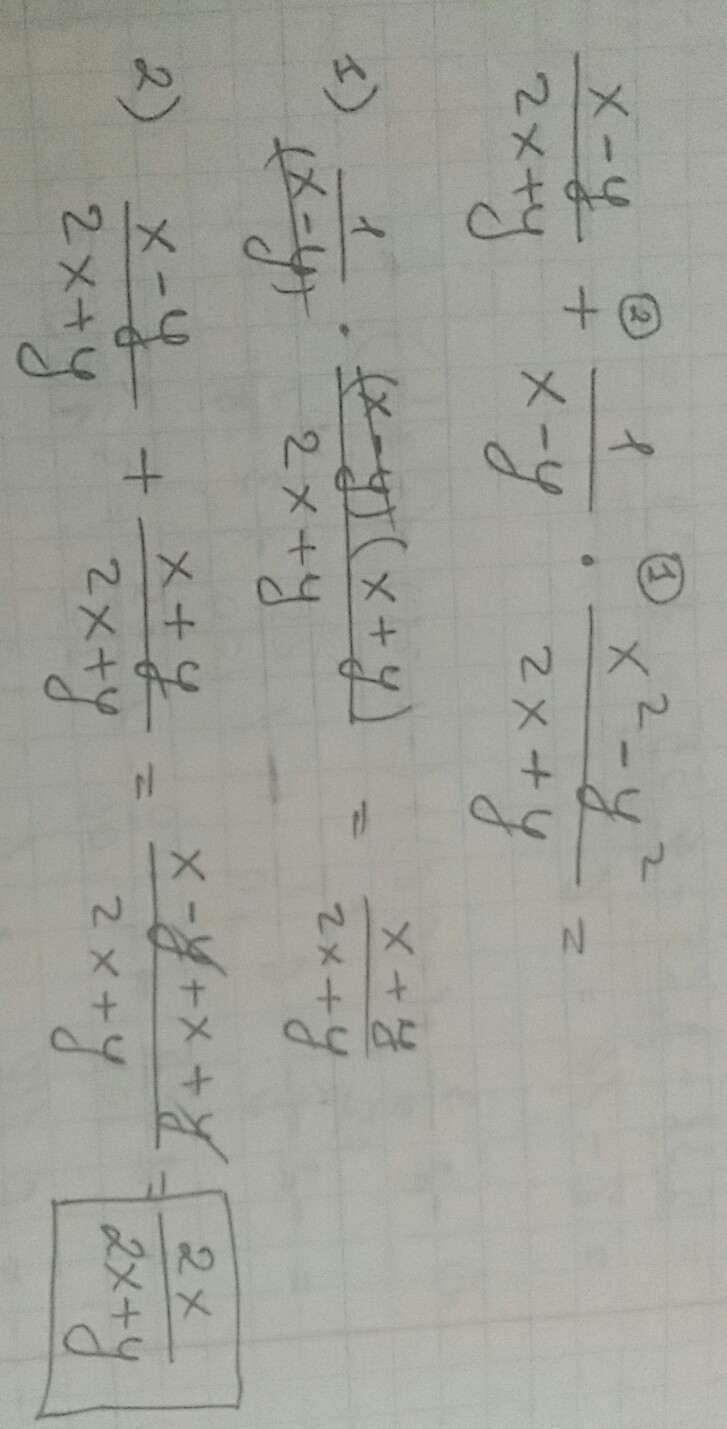 (x-y)/(2x+y) +② 1/(x-y) ·① (x²-y²)/(2x+y) =
1) 1/(x-y) · (x-y)(x+y)/(2x+y) = (x+y)/(2x+y)
2) (x-y)/(2x+y) + (x+y)/(2x+y) = (x-y+x+y)/(2x+y) = 2x/(2x+y)